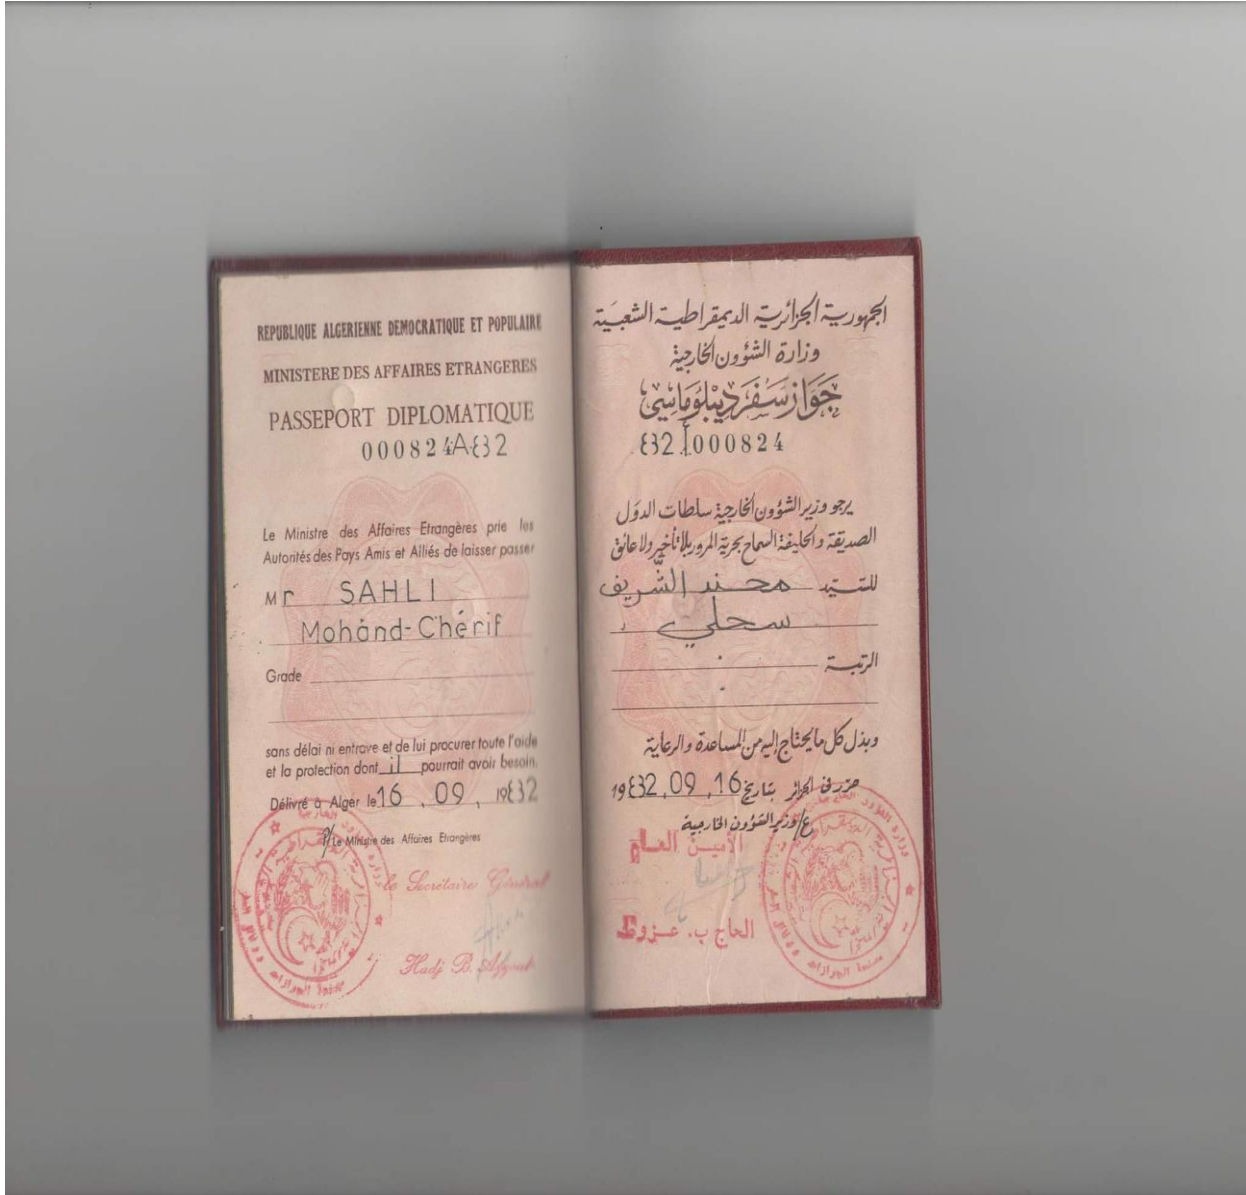 REPUBLIQUE ALGERIENNE DEMOCRATIQUE ET POPULAIRE
MINISTERE DES AFFAIRES ETRANGERES
PASSEPORT DIPLOMATIQUE
000824
Le Ministre des Affaires Etrangères prie les
Autorités des Pays Amis et Alliés de laisser passer
Mr SAHLI
Mohand-Chérif
Grade
sans délai ni entrave et de lui procurer toute l'aide
et la protection dont il pourrait avoir besoin.
Délivré à Alger le 16, 09,
P/Le Ministre des Affaires Etrangères
le Secrétaire Général
Hadj B.
الجمهورية الجزائرية الديمقراطية الشعبية
وزارة الشؤون الخارجية
جواز سفر ديبلوماسي
000824
يرجو وزير الشؤون الخارجية سلطات الدول
الصديقة والحليفة السماح بحرية المرور بلا تأخير ولا عائق
للسيد محند الشريف
سحلي
الرتبة
وبذل كل ما يحتاج إليه من المساعدة والرعاية
حرر في الجزائر بتاريخ 16, 09,
ع/وزير الشؤون الخارجية
الأمين العام
الحاج ب. عزوط